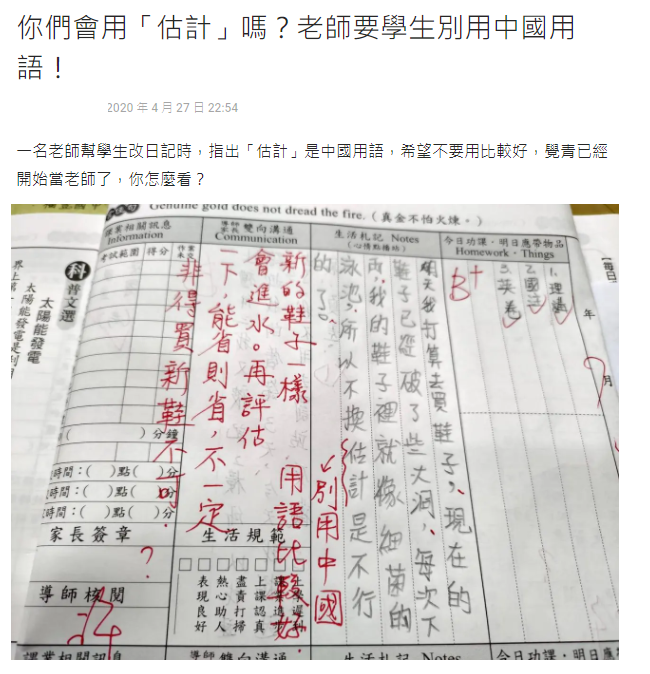 你們會用「估計」嗎？老師要學生別用中國用
語！
2020 年 4 月 27 日 22:54
一名老師幫學生改日記時，指出「估計」是中國用語，希望不要用比較好，覺青已經
開始當老師了，你怎麼看？
Genuine gold does not dread the fire.（真金不怕火煉。）
今日功課・明日應帶物品
Homework・Things
1. 理
2. 國
3. 英卷
B+
年
月
生活札記 Notes
（心情點播站）
明天我打算去買鞋子，現在的
鞋子已經破了些大洞，每次下
雨，我的鞋子裡就像細菌的
泳池，所以不換估計是不行
的了。
別用中國
用語比較好。
導師家長 雙向溝通
Communication
新的鞋子一樣
會進水。再評估
一下，能省則省，不一定
非得買新鞋不可。
生活規範
上課認真
盡責打掃
熱心助人
表現良好
課業相關訊息
Information
考試範圍
得分
作業未交
（ ）分鐘
時間：（ ）點（ ）分
時間：（ ）點（ ）分
時間：（ ）點（ ）分
家長簽章
？
導師核閱
科普文選
太陽能發電
太陽能發電是利用
界上第一
【每日
課業相關訊息
導師 雙向溝通
生活札記 Notes
今日功課・明日應